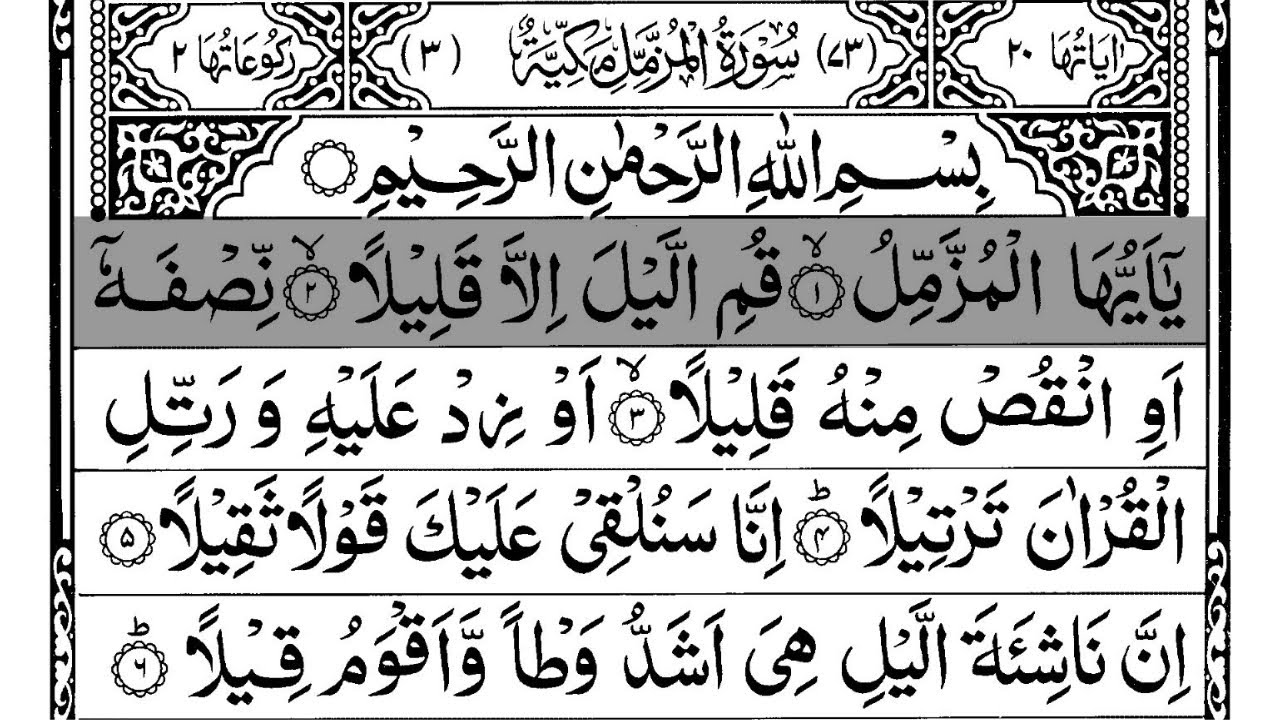 اٰيَاتُهَا ۲۰ (۷۳) سُوْرَةُ الْمُزَّمِّلِ مَكِّيَّةٌ (۳) رُكُوْعَاتُهَا ۲
بِسْمِ اللّٰهِ الرَّحْمٰنِ الرَّحِيْمِ
يٰۤاَيُّهَا الْمُزَّمِّلُ ۙ‏﴿۱﴾ قُمِ الَّيْلَ اِلَّا قَلِيْلًا ۙ‏﴿۲﴾ نِّصْفَهٗۤ
اَوِ انْقُصْ مِنْهُ قَلِيْلًا ۙ‏﴿۳﴾ اَوْ زِدْ عَلَيْهِ وَ رَتِّلِ
الْقُرْاٰنَ تَرْتِيْلًا ؕ‏﴿۴﴾ اِنَّا سَنُلْقِيْ عَلَيْكَ قَوْلًا ثَقِيْلًا ﴿۵﴾
اِنَّ نَاشِئَةَ الَّيْلِ هِيَ اَشَدُّ وَطْاً وَّاَقْوَمُ قِيْلًا ؕ‏﴿۶﴾